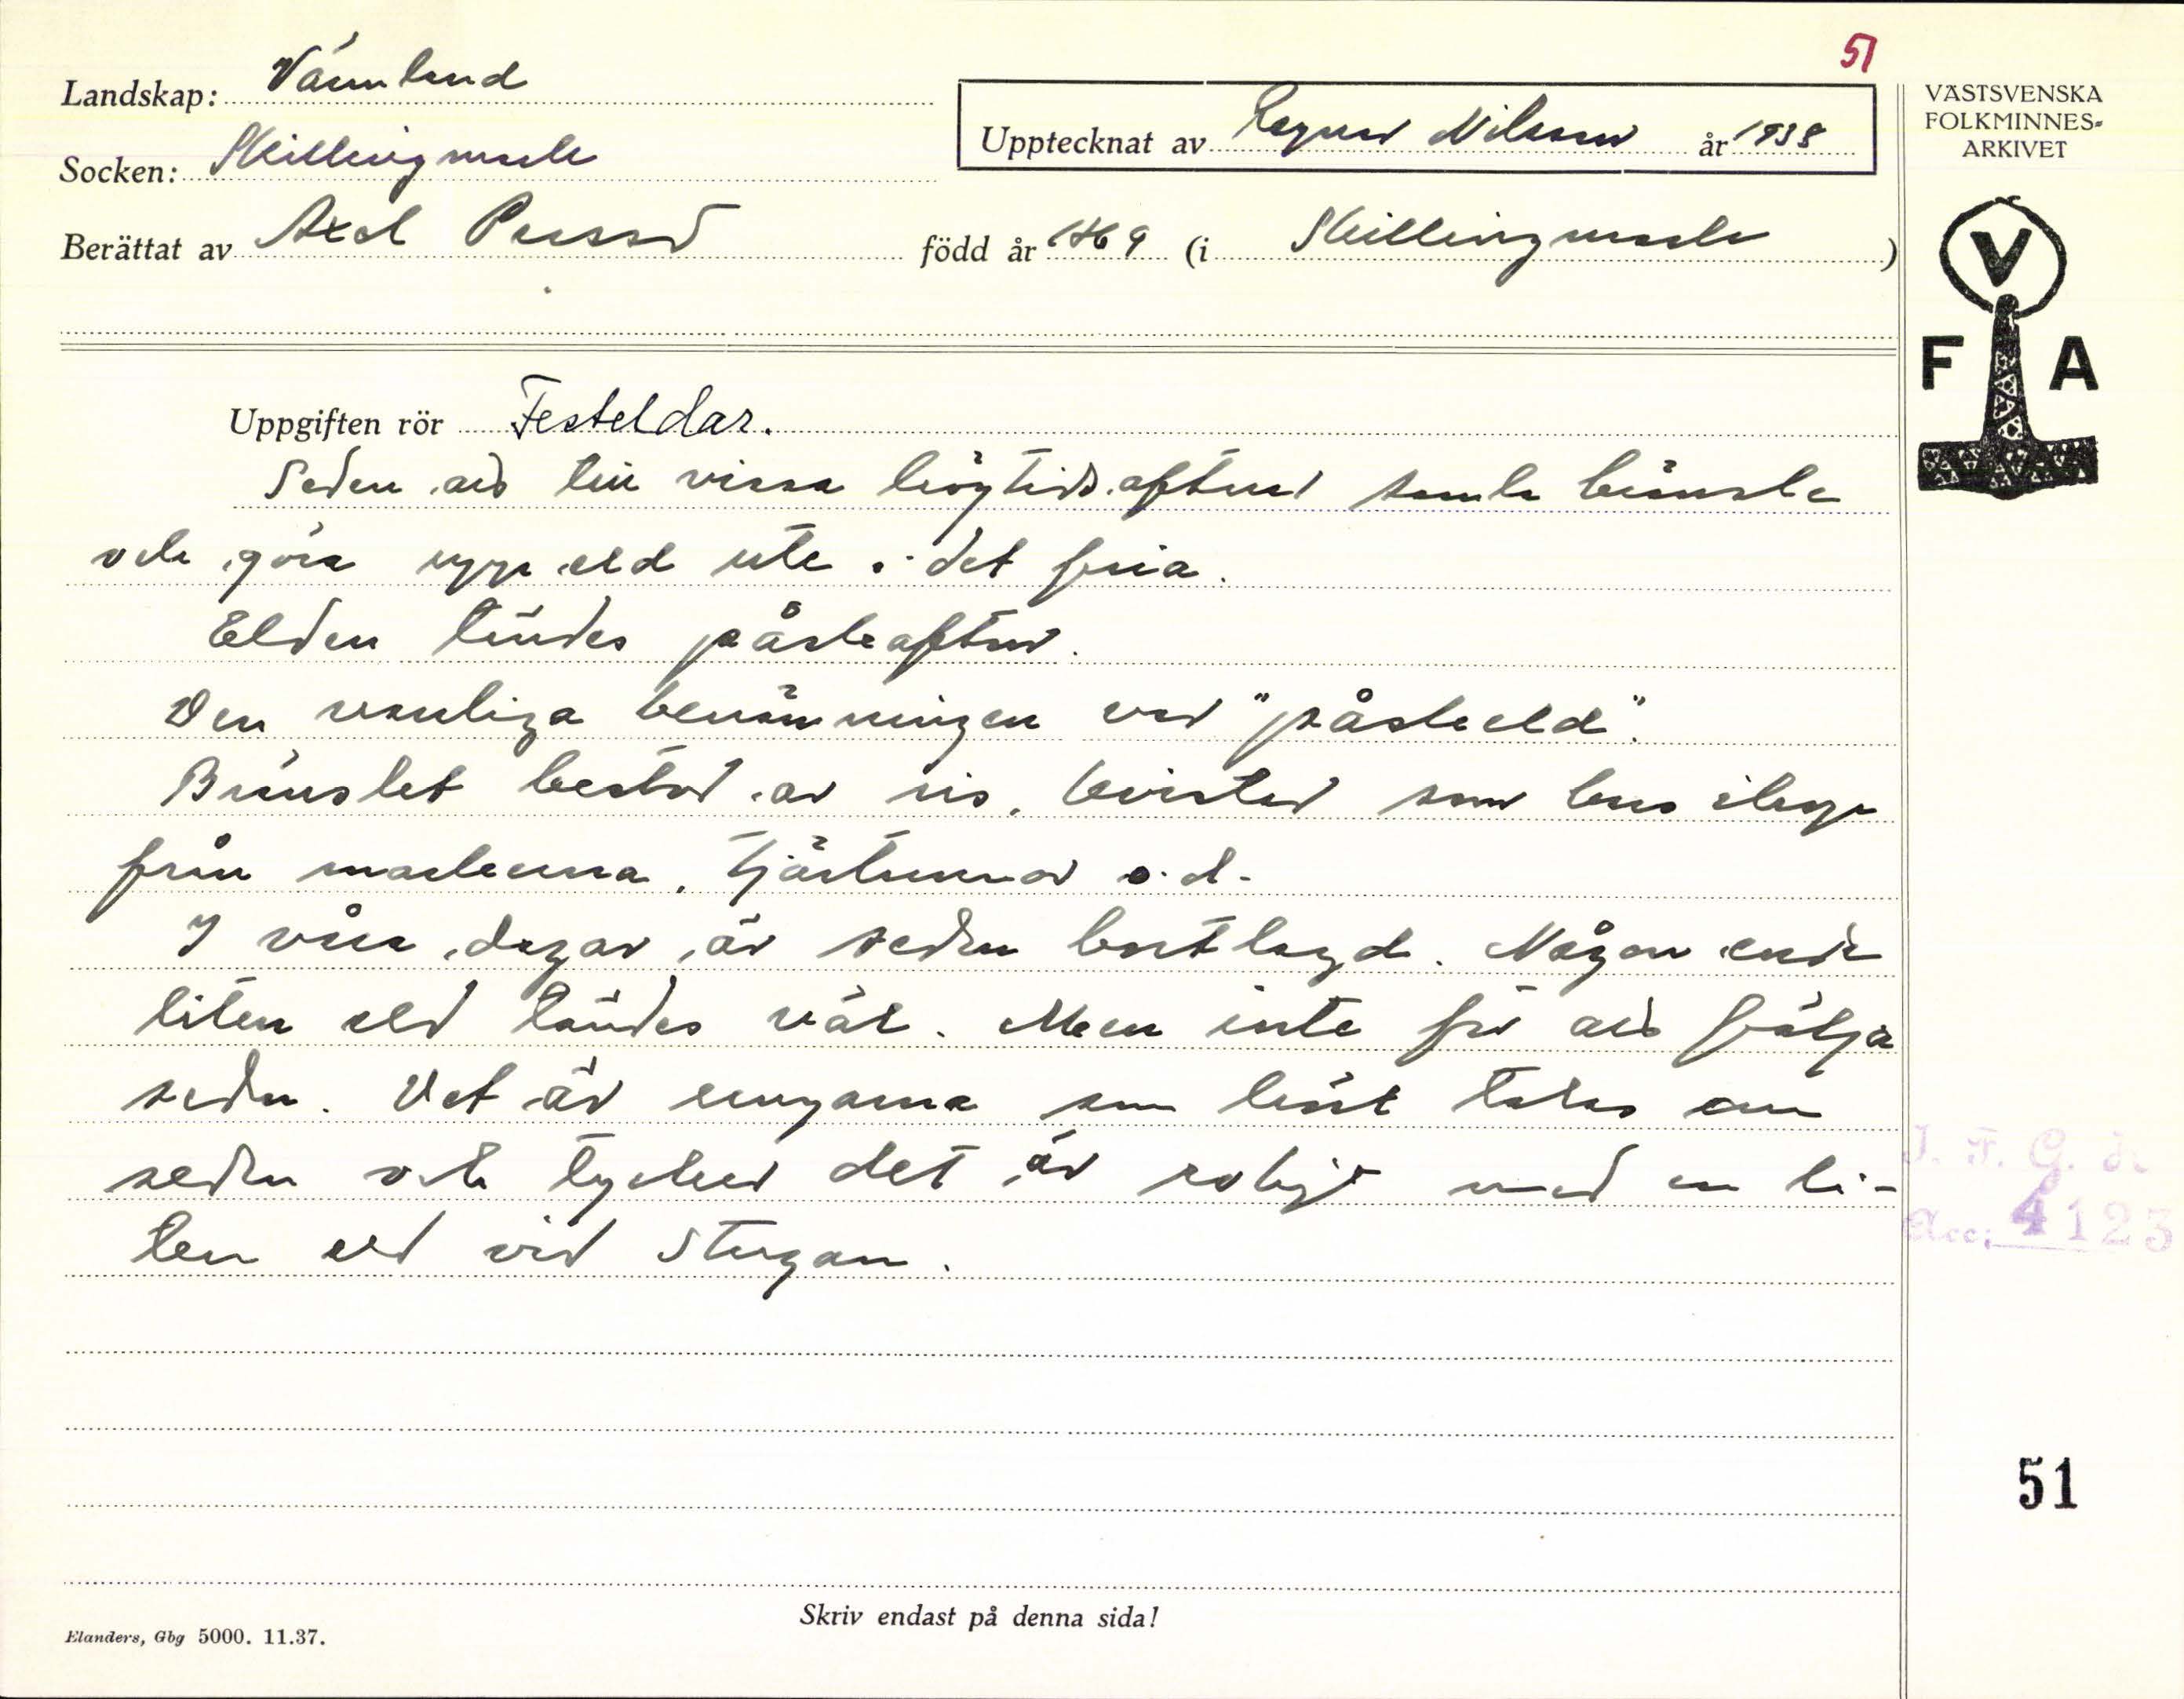 51
Landskap: Värmland
Socken: Skillingmark
Berättat av Axel Persson
Upptecknat av Ragnar Nilsson år 1938
född år 1869 (i Skillingmark)
Uppgiften rör Festeldar.
Seden att till vissa högtidsaftnar samla bränsle
och göra upp eld ute i det fria.
Elden tändes påskafton.
Den vanliga benämningen var "påskeld".
Bränslet bestod av ris, kvistar som låg
från markerna, tjärtunnor o.d.
I våra dagar är seden bortlagd. Någon enda
liten eld tändes väl. Men inte för att följa
seden. Det är ungarna som hört talas om
seden och tycker det är roligt med en li-
ten eld vid stugan.
Skriv endast på denna sida!
Elanders, Gbg 5000. 11.37.
VÄSTSVENSKA
FOLKMINNES-
ARKIVET
V
F A
I. F. G. H.
Acc: 4123
51